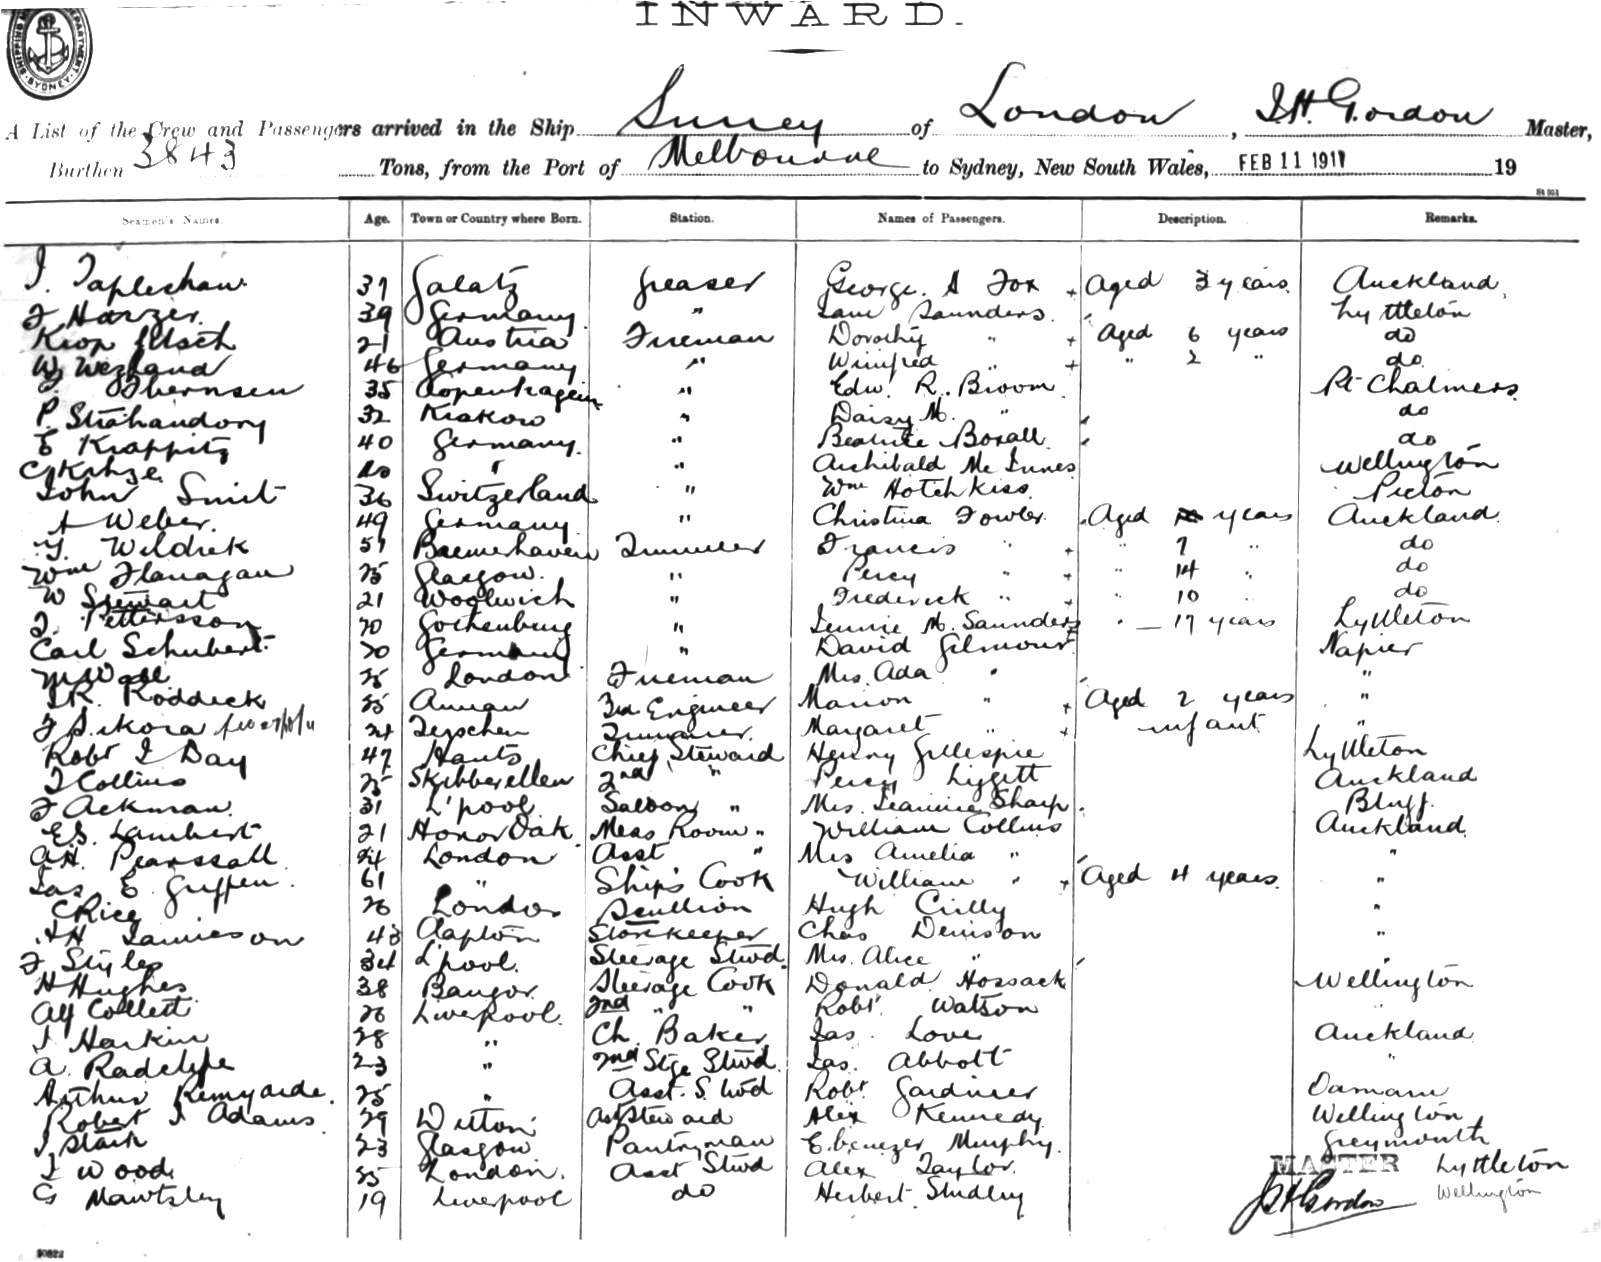 INWARD.
SYDNEY
A List of the Crew and Passengers arrived in the Ship Surrey of London, J.H. Gordon Master,
Burthen 3843 Tons, from the Port of Melbourne to Sydney, New South Wales, FEB 11 1911 19
Seamen's Names. Age. Town or Country where Born. Station. Names of Passengers. Description. Remarks.
37 Galatz Greaser George. A Fox + Aged 3 years. Auckland,
39 Germany " Saunders. Lyttleton
21 Austria Fireman Dorothy " + Aged 6 years do
46 Germany " Winifred " + " 2 " do
35 Kopenhagen " Edw. R. Broom Pt Chalmers
P. 32 Krakow " Daisy M. " do
E 40 Germany. " Beatrice Boxall do
" " Archibald Mc Innes Wellington
John Smit 36 Switzerland " Wm Hotchkiss Picton
A Weber. 49 Germany " Christina Fowler. Aged years Auckland
Wildrick 51 Trimmer Francis " + " 7 " do
Wm Flanagan 25 Glasgow. " Percy " + " 14 " do
W Stewart 21 Woolwich " Frederick " + " 10 " do
Pettersson 20 Gothenburg " Jennie M. Saunders " 17 years Lyttleton
Carl Schubert 20 Germany " David Gilmour Napier
25 London Fireman Mrs. Ada " "
Roddick 25 Annan Engineer Marion " + Aged 2 years "
Sikora 24 Trimmer. Margaret " + infant "
Robt J Day 47 Hants Chief Steward Henry Gillespie Lyttleton
J Collins 25 Skibbereen 2nd " Percy Liggett Auckland
F Ackman. 31 L'pool Saloon " Mrs. Jeannie Sharp. Bluff.
E.S. Lambert 21 Honor Oak Mess Room " William Collins Auckland
A.H. Pearssall 24 London Asst " Mrs Amelia " "
Jas E. Griffen. 61 " Ship's Cook William " + Aged 4 years. "
C Rice 26 London Scullion Hugh Crilly "
J H Jamieson 43 Clapton Storekeeper Chas Denison "
F Styles 34 L'pool. Steerage Stwd. Mrs. Alice " "
H Hughes 38 Bangor. Steerage Cook Donald Hossack Wellington
Alf Collett 26 Liverpool. 2nd " " Robt Watson "
J Harkin 28 " Ch. Baker Jas. Love Auckland
A. Radclyffe 23 " 2nd Stge Stwd. Jas. Abbott "
Arthur 25 " Asst. S. Stwd Robt Gardiner Oamaru
Robert J Adams 29 Witton Asst Steward Alex Kennedy Wellington
J Stark 23 Glasgow Pantryman Ebenezer Murphy. Greymouth
J Wood 25 London. Asst Stwd Alex Taylor. MASTER Lyttleton
G 19 Liverpool do Herbert Studley JH Gordon Wellington